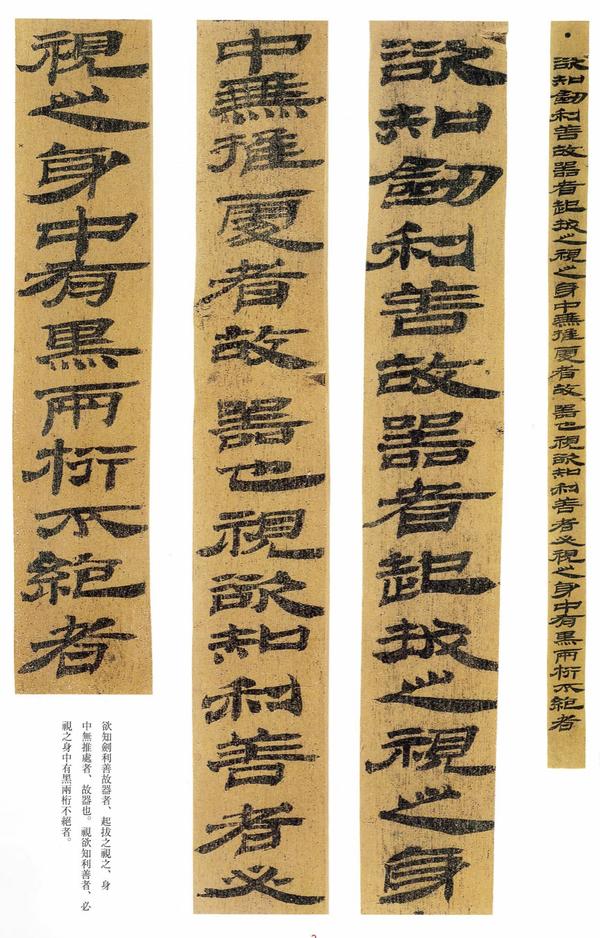 •欲知劍利善故器者起拔之視之身中無推處者故器也視欲知利善者必視之身中有黑兩桁不絕者
欲知劍利善故器者起拔之視之身
中無推處者故器也視欲知利善者必
視之身中有黑兩桁不絕者
欲知劍利善故器者、起拔之視之、身
中無推處者、故器也。視欲知利善者、必
視之身中有黑兩桁不絕者。